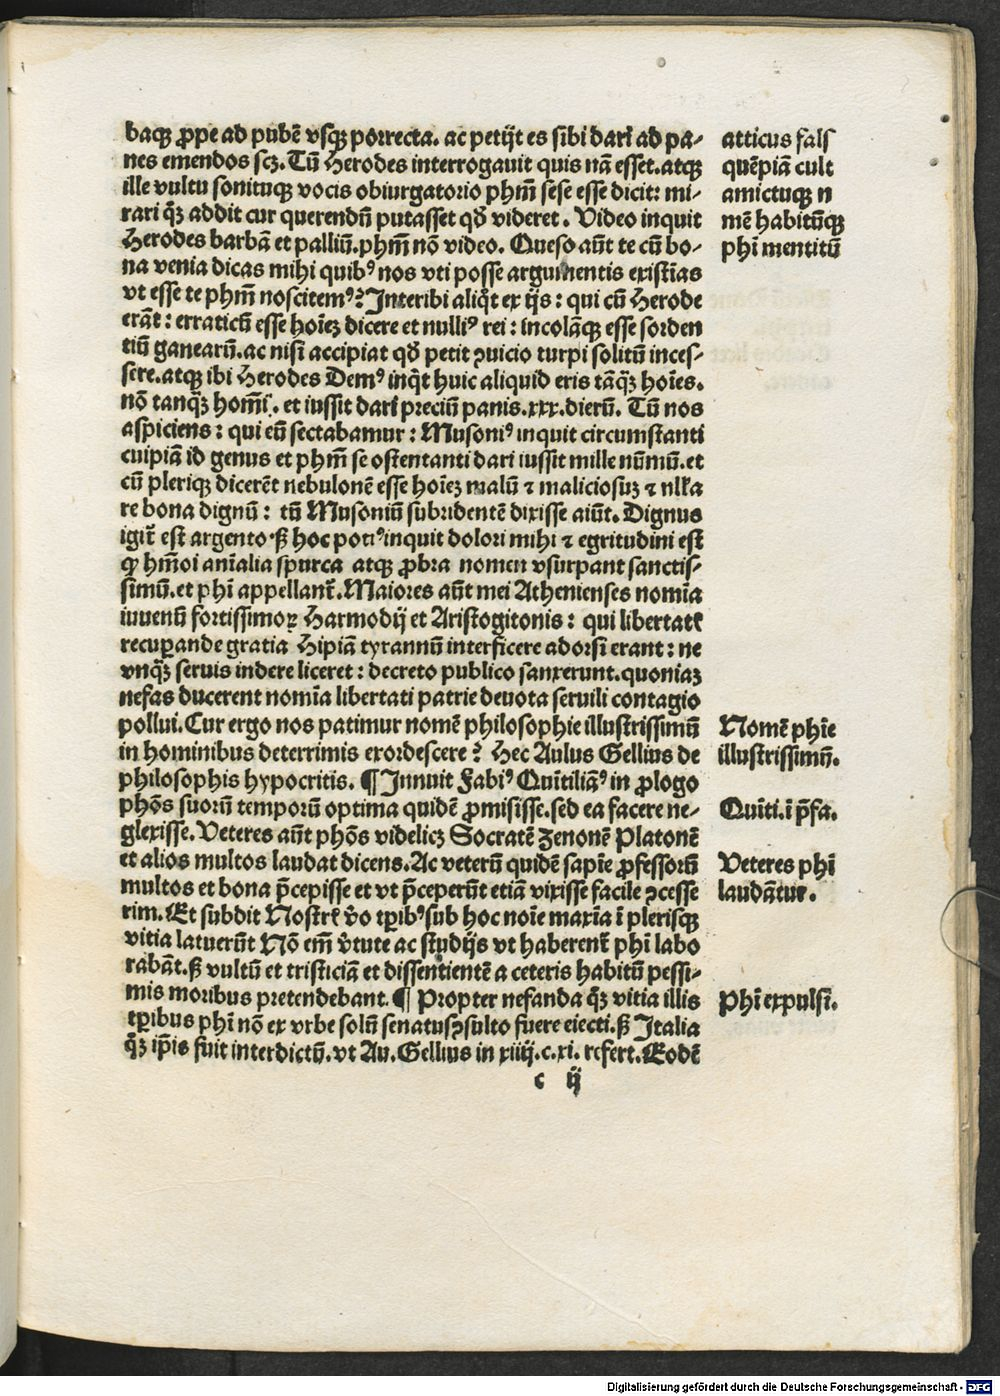 baqꝫ ꝓpe ad pubē vsqꝫ porrecta. ac petijt es sibi dari ad pa-
nes emendos scꝫ. Tū Herodes interrogauit quis nā esset. atqꝫ
ille vultu sonituqꝫ vocis obiurgatorio phm̄ sese esse dicit: mi-
rari qꝫ̄ addit cur querendū putasset qđ videret. Video inquit
Herodes barbā et palliū. phm̄ nō video. Queso aūt te cū bo-
na venia dicas mihi quibꝰ nos vti posse argumentis existīas
vt esse te phm̄ noscitemꝰ? Interibi aliq̇t ex ijs: qui cū Herode
erāt: erraticū esse hoīeꝫ dicere et nulliꝰ rei: incolāqꝫ esse sorden
tiū ganearū. ac nisi accipiat qđ petit ꝯuicio turpi solitū inces-
sere. atqꝫ ibi Herodes Demꝰ inq̇t huic aliquid eris tāqꝫ̄ hoīes.
nō tanqꝫ̄ homī. et iussit dari preciū panis .xxx. dierū. Tū nos
aspiciens: qui eū sectabamur: Musoniꝰ inquit circumstanti
cuipiā id genus et phm̄ se ostentanti dari iussit mille nūmū. et
cū pleriqꝫ dicerēt nebulonē esse hoīeꝫ malū ⁊ maliciosuꝫ ⁊ nlła
re bona dignū: tū Musoniū subridentē dixisse aiūt. Dignus
igit̄ est argento. ꝭꝫ hoc potiꝰ inquit dolori mihi ⁊ egritudini est
ꝙ hm̄oi anīalia spurca atqꝫ ꝓbra nomen vsurpant sanctis-
simū. et phī appellant̄. Maiores aūt mei Athenienses nomīa
iuuenū fortissimoꝝ Harmodij et Aristogitonis: qui libertatē
recuꝑande gratia Hipiā tyrannū interficere adorsi erant: ne
vnqꝫ̄ seruis indere liceret: decreto publico sanxerunt. quoniaꝫ
nefas ducerent nomīa libertati patrie deuota seruili contagio
pollui. Cur ergo nos patimur nomē philosophie illustrissimū
in hominibus deterrimis exordescere? Hec Aulus Gellius de
philosophis hypocritis. ¶ Innuit Fabiꝰ Quītiliāꝰ in ꝓlogo
phōs suorū temporū optima quidē ꝓmisisse. sed ea facere ne-
glexisse. Veteres aūt phōs videlicꝫ Socratē Zenonē Platonē
et alios multos laudat dicens. Ac veterū quidē sapīe ꝓfessorū
multos et bona p̄cepisse et vt p̄ceperūt etiā vixisse facile ꝯcesse
rim. Et subdit Nostrꝭ v̊o tꝑibꝰ sub hoc noīe maxīa ī plerisqꝫ
vitia latuerūt Nō em̄ v̊tute ac studijs vt haberent̄ phī labo
rabāt. ꝭꝫ vultū et tristiciā et dissentientē a ceteris habitū pessi-
mis moribus pretendebant. ¶ Propter nefanda qꝫ̄ vitia illis
tꝑibus phī nō ex vrbe solū senatusꝯsulto fuere eiecti. ꝭꝫ Italia
qꝫ̄ ip̄is fuit interdictū. vt Au. Gellius in xiiij. c. xi. refert. Eodē
c ij
atticus fals
quēpiā cult
amictuqꝫ n
mē habitūqꝫ
phī mentitū
Nomē phīe
illustrissimū.
Quīti. ī p̄fa.
Veteres phī
laudātur.
Phī expulsī.
Digitalisierung gefördert durch die Deutsche Forschungsgemeinschaft - DFG